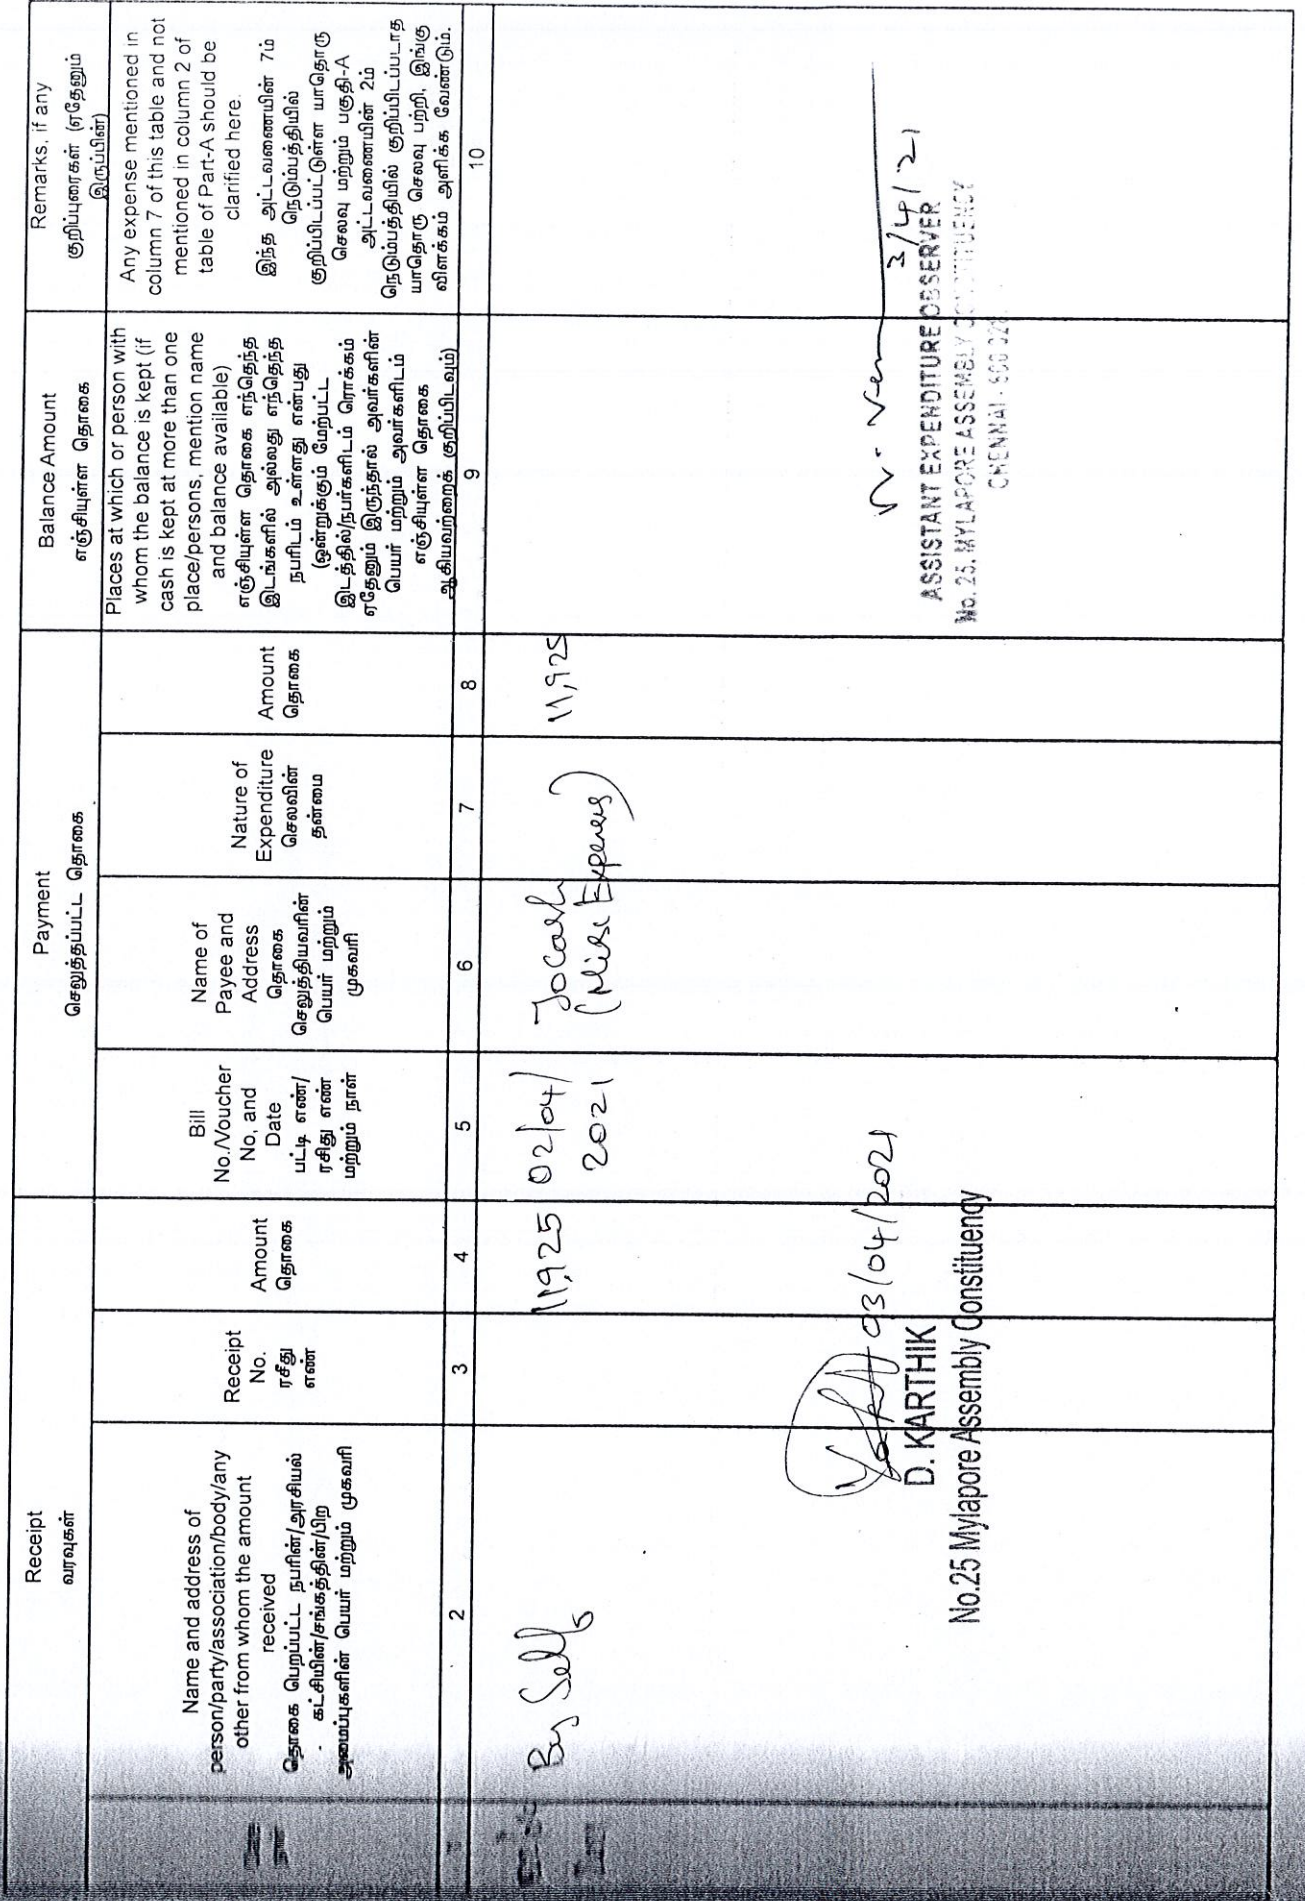 Receipt
வரவுகள்
Payment
செலுத்தப்பட்ட தொகை
Balance Amount
எஞ்சியுள்ள தொகை
Remarks, if any
குறிப்புரைகள் (ஏதேனும்
இருப்பின்)
Name and address of
person/party/association/body/any
other from whom the amount
received
தொகை பெறப்பட்ட நபரின்/அரசியல்
கட்சியின்/சங்கத்தின்/பிற
அமைப்புகளின் பெயர் மற்றும் முகவரி
Receipt
No.
ரசீது
எண்
Amount
தொகை
Bill
No./Voucher
No, and
Date
பட்டி எண்/
ரசிது எண்
மற்றும் நாள்
Name of
Payee and
Address
தொகை
செலுத்தியவரின்
பெயர் மற்றும்
முகவரி
Nature of
Expenditure
செலவின்
தன்மை
Amount
தொகை
Places at which or person with
whom the balance is kept (if
cash is kept at more than one
place/persons, mention name
and balance available)
எஞ்சியுள்ள தொகை எந்தெந்த
இடங்களில் அல்லது எந்தெந்த
நபரிடம் உள்ளது என்பது
(ஒன்றுக்கும் மேற்பட்ட
இடத்தில்/நபர்களிடம் ரொக்கம்
ஏதேனும் இருந்தால் அவர்களின்
பெயர் மற்றும் அவர்களிடம்
எஞ்சியுள்ள தொகை
ஆகியவற்றைக் குறிப்பிடவும்)
Any expense mentioned in
column 7 of this table and not
mentioned in column 2 of
table of Part-A should be
clarified here.
இந்த அட்டவணையின் 7ம்
நெடும்பத்தியில்
குறிப்பிடப்பட்டுள்ள யாதொரு
செலவு மற்றும் பகுதி-A
அட்டவணையின் 2ம்
நெடும்பத்தியில் குறிப்பிடப்படாத
யாதொரு செலவு பற்றி, இங்கு
விளக்கம் அளிக்க வேண்டும்.
2 3 4 5 6 7 8 9 10
By Self 11,925 02/04/ To Cash 11,925
2021 (Misc Expenses)
03/04/2021
D. KARTHIK
No.25 Mylapore Assembly Constituency
3/4/21
ASSISTANT EXPENDITURE OBSERVER
No. 25, MYLAPORE ASSEMBLY CONSTITUENCY
CHENNAI